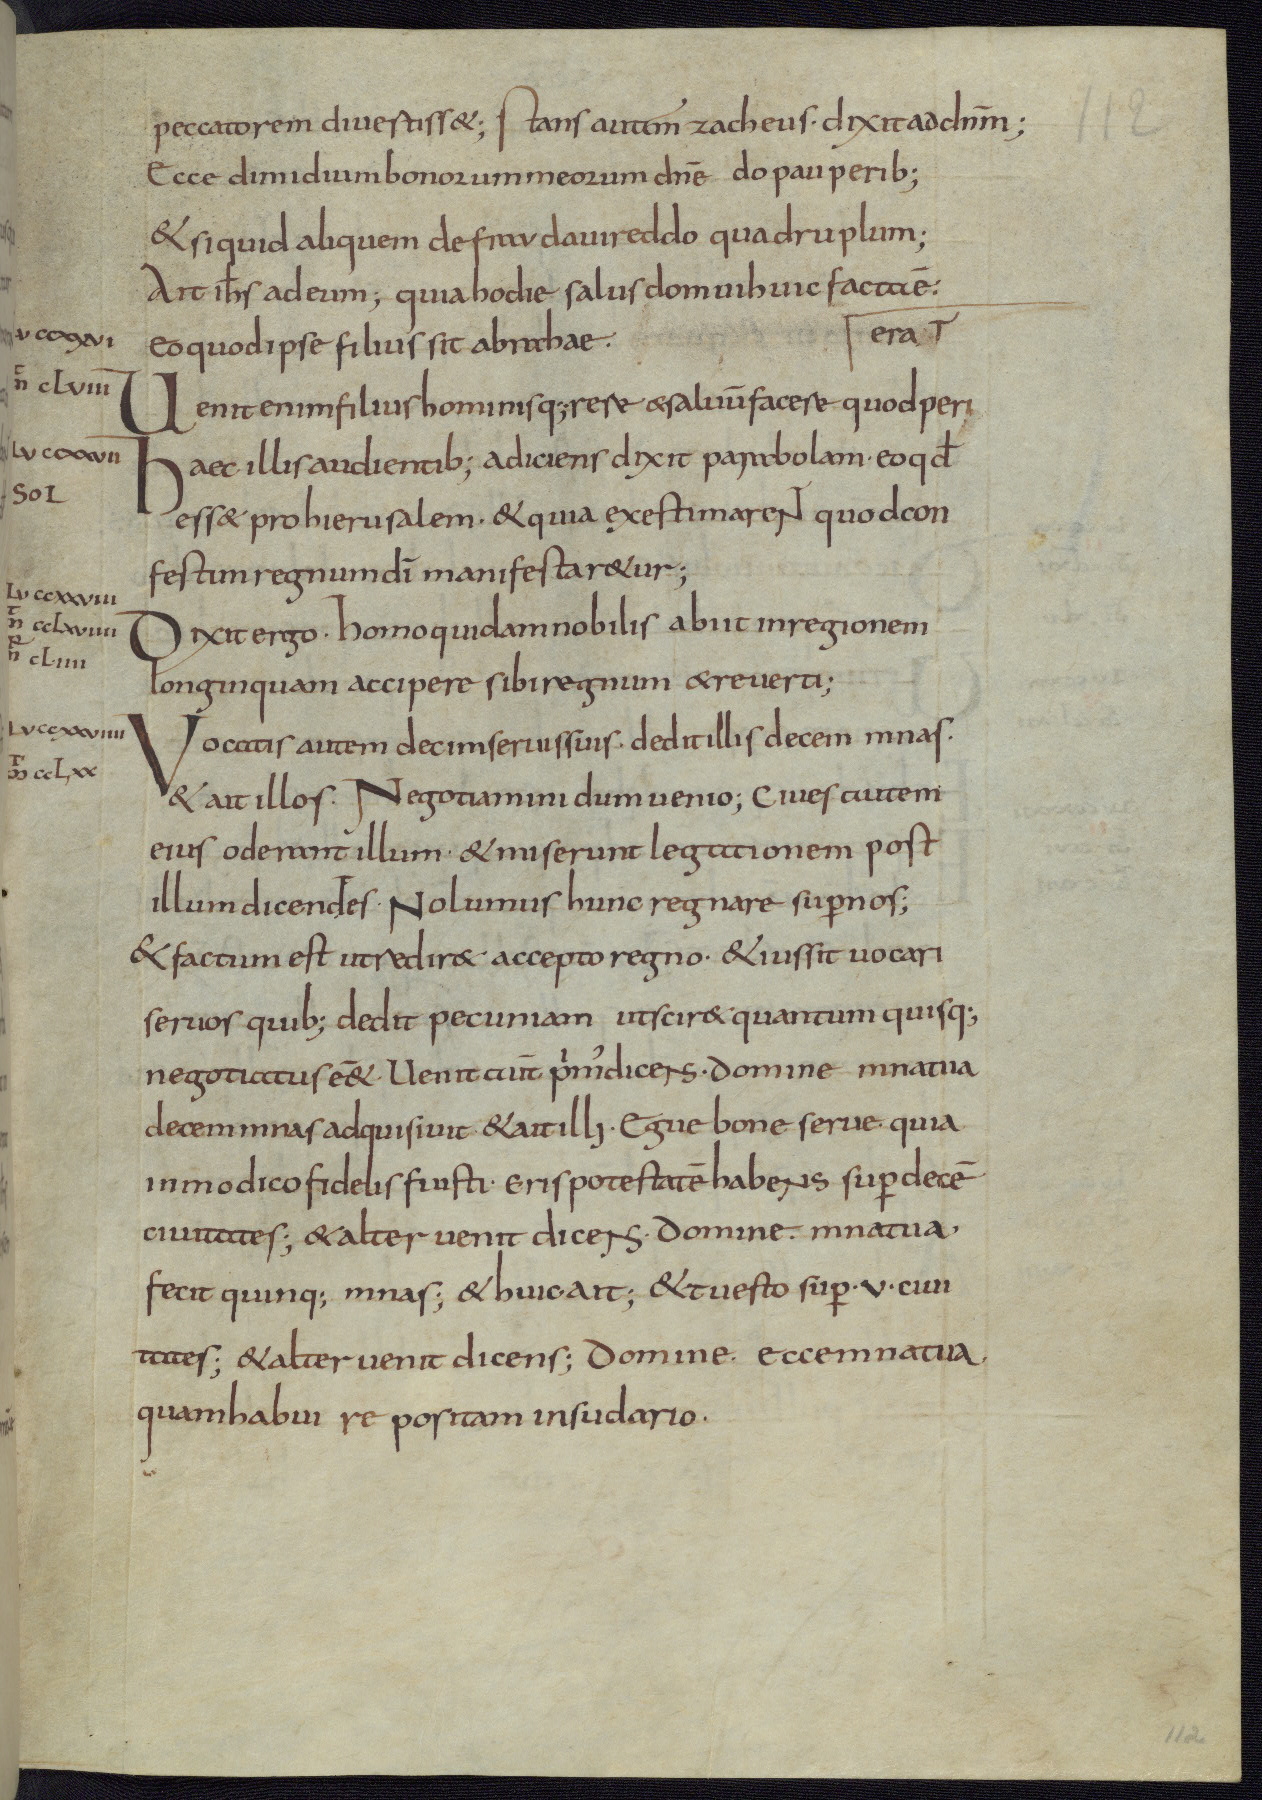 112
peccatorem divertiss&; Stans autem zacheus· dixit ad dnm̄;
Ecce dimidium bonorum meorum dnē do pauperib;
& si quid aliquem defraudavi reddo quadruplum;
Ait ihs̄ ad eum; quia hodie salus domui huic facta ē:
eo quod ipse filius sit abrahae.
erat
Lv ccxxvi
m̄ cLviii
Uenit enim filius hominis q;rere & saluū facere quod peri
Lv ccxxvii
SoL
haec illis audientib; adiciens dixit parabolam· eo qd̄
ess& pro hierusalem· & quia exestimarent quod con
festim regnum dī manifestar&ur;
Lv ccxxviii
m̄ ccLxviiii
m̄ cLiiii
Dixit ergo· homo quidam nobilis abiit in regionem
longinquam accipere sibi regnum & reverti;
Lv ccxxviiii
m̄ ccLxx
Vocatis autem decim servis suis· dedit illis decem mnas·
& ait illos· Negotiamini dum venio; Cives autem
eius oderant illum· & miserunt legationem post
illum dicentes· Nolumus hunc regnare sup̄ nos;
& factum est ut redir& accepto regno· & iussit vocari
servos quib; dedit pecuniam ut scir& quantum quisq;
negotiatus ēe&· Uenit aut̄ prim' dicens· domine mna tua
decem mnas adquisivit· & ait illi· Euge bone serve quia
in modico fidelis fuisti· Eris potestatē habens sup̄ decē
civitates; & alter venit dicens· Domine· mna tua·
fecit quinq; mnas; & huic Ait; & tu esto sup̄·v·civi
tates; & alter venit dicens; Domine· ecce mna tua·
quam habui re positam in sudario·
112